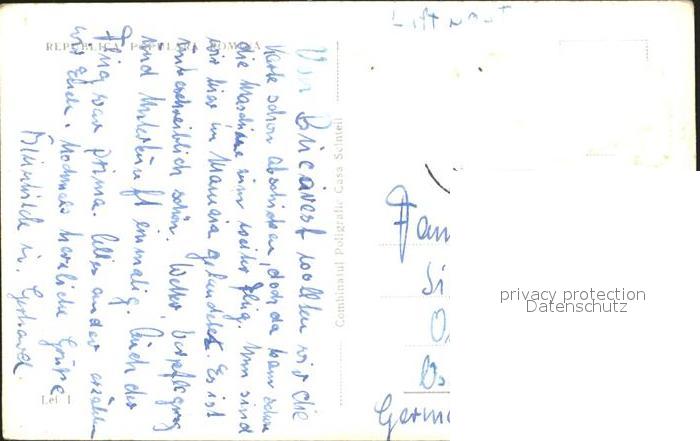 Luftpost
REPUBLICA POPULARA ROMINA
Von Bucarest wollten wir die
Karte schon abschicken, doch da kam schon
die Maschine zum Weiterflug. Nun sind
wir hier in Mamaia gelandet. Es ist
unbeschreiblich schön. Wetter, Verpflegung
und Unterkunft einmalig. Auch der
Flug war prima. Alles andere erzählen
wir Euch. Nochmals herzliche Grüße
u. Gerhard.
Lei 1
Combinatul Poligrafic Casa Scînteii
Fam
Germ
privacy protection
Datenschutz